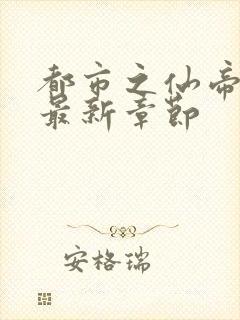 都市之仙帝
最新章节
安格瑞